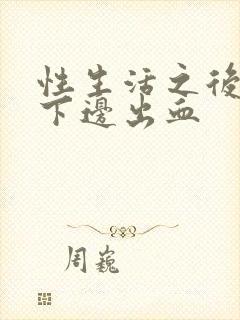 性生活之後
下邊出血
周巍